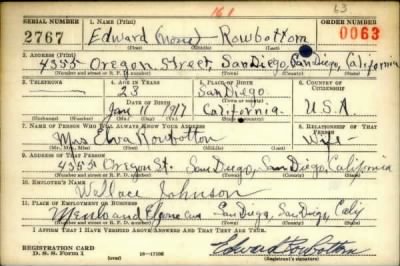 161 63
SERIAL NUMBER 1. NAME (Print) ORDER NUMBER
2767 Edward (none) Rowbottom 0063
(First) (Middle) (Last)
2. ADDRESS (Print)
4355 Oregon Street, San Diego, San Diego, California
(Number and street or R. F. D. number) (Town) (County) (State)
3. TELEPHONE 4. AGE IN YEARS 5. PLACE OF BIRTH 6. COUNTRY OF CITIZENSHIP
23 San Diego
DATE OF BIRTH (Town or county)
Jan 1917 California U.S.A.
(Exchange) (No.) (Mo.) (Day) (Yr.) (State or country)
7. NAME OF PERSON WHO WILL ALWAYS KNOW YOUR ADDRESS 8. RELATIONSHIP OF THAT PERSON
Mrs Elva Rowbottom Wife
(Mr., Mrs., Miss) (First) (Middle) (Last)
9. ADDRESS OF THAT PERSON
4355 Oregon St. San Diego, San Diego, California
(Number and street or R. F. D. number) (Town) (County) (State)
10. EMPLOYER'S NAME
Wallace Johnson
11. PLACE OF EMPLOYMENT OR BUSINESS
and San Diego, San Diego, Calif
(Number and street or R. F. D. number) (Town) (County) (State)
I AFFIRM THAT I HAVE VERIFIED ABOVE ANSWERS AND THAT THEY ARE TRUE.
REGISTRATION CARD
D. S. S. Form 1 16—17105 Edward Rowbottom
(Registrant's signature)